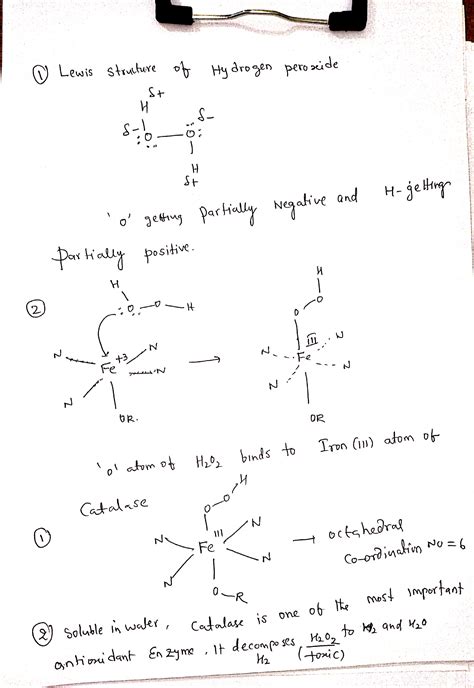 ① Lewis structure of Hydrogen peroxide
δ+
H
δ- :O — O: δ-
H
δ+
'O' getting Partially Negative and H-getting
Partially positive.
②
H
:O — O — H
N Fe+3 N
N N
OR.
H
O
O
N III N
Fe
N N
OR
'O' atom of H2O2 binds to Iron (III) atom of
Catalase
H
O
O
① N Fe III N → octahedral
N N Co-ordination NO = 6
O-R
② Soluble in water, Catalase is one of the most important
antioxidant Enzyme. It decomposes H2O2 to H2 and H2O
H2 (toxic)